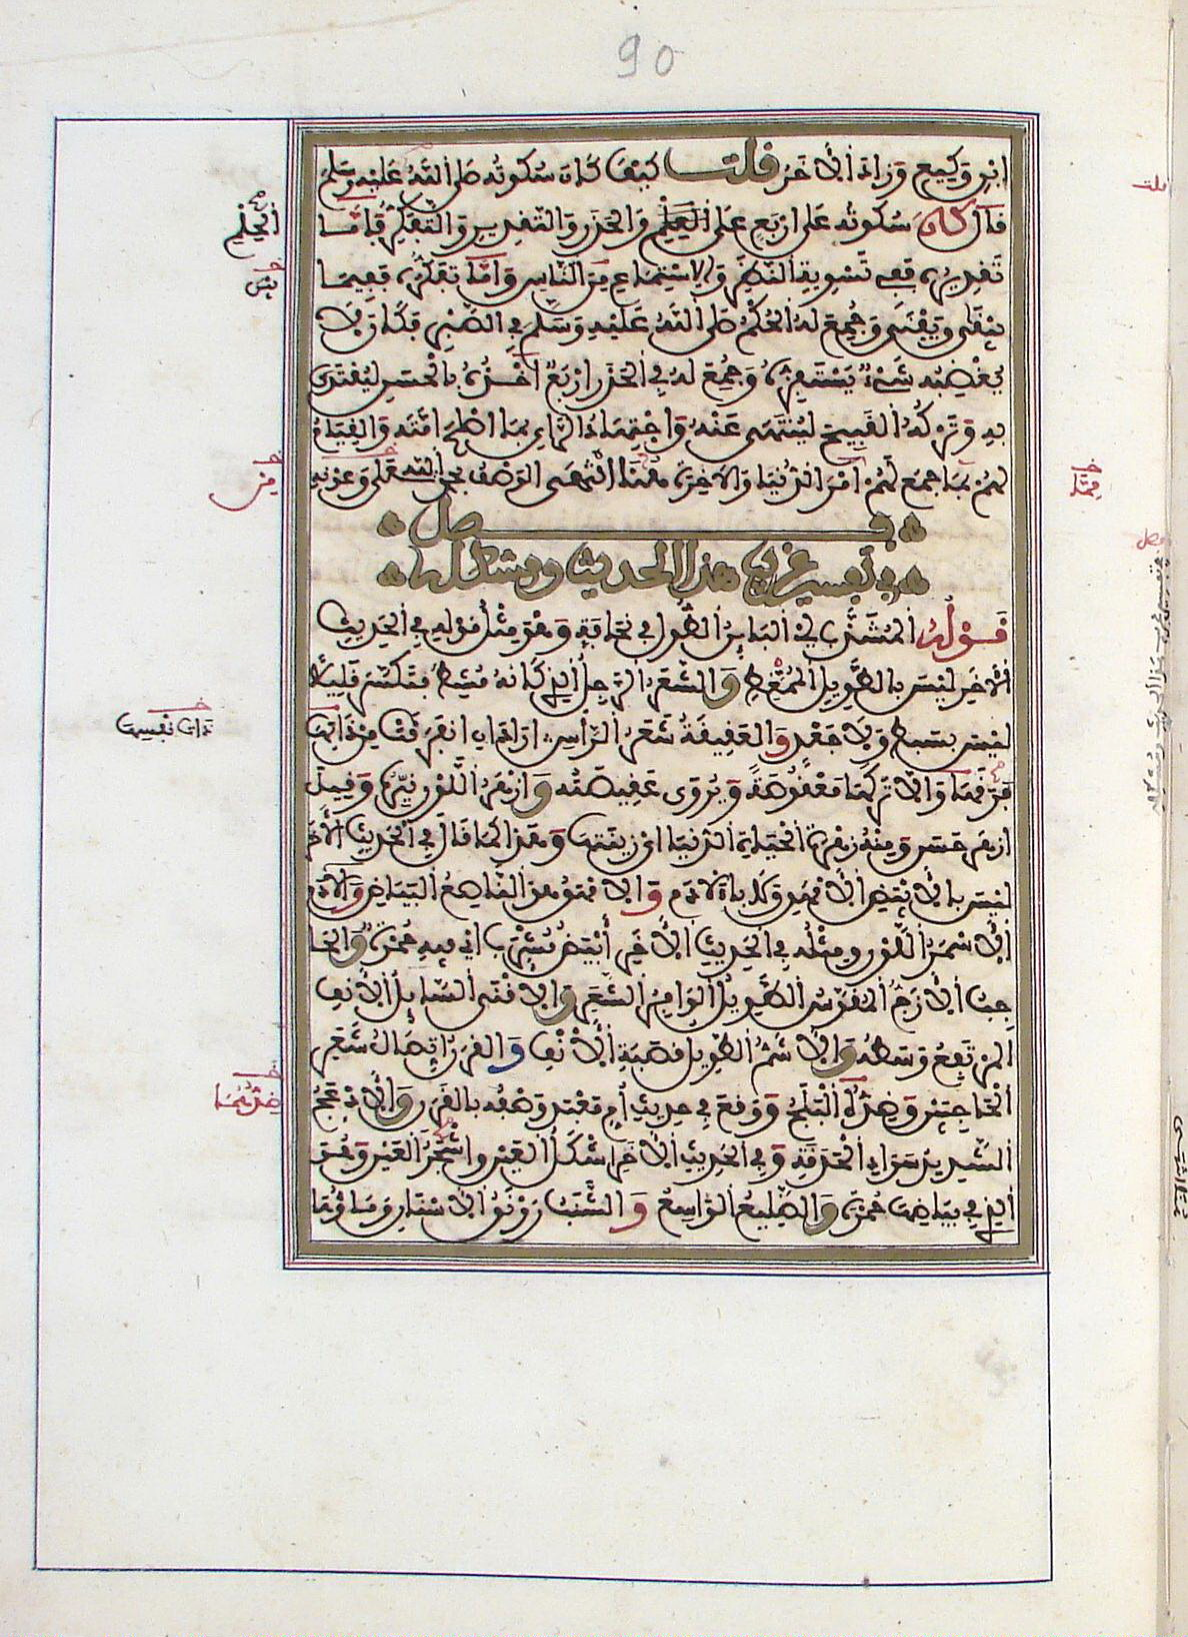 90
ابن وكيع وزاد الاخر قلت كيف كان سكوته صلى الله عليه وسلم
قال كان سكوته على اربع على الحلم والحذر والتقدير والتفكر فاما
تقديره ففي تسوية النظر والاستماع من الناس واما تفكره ففيما
يبقى ويفنى وجمع له الحلم صلى الله عليه وسلم في الصبر فكان لا
يغضبه شيء يستفزه وجمع له في الحذر اربع اخذه بالحسن ليقتدى
به وتركه القبيح لينتهى عنه واجتهاد الراي بما اصلح امته والقيام
لهم بما جمع لهم امر الدنيا والاخرة هنا انتهى الوصف بحمد الله تعلى وعونه
فصل
في تفسير غريب هذا الحديث ومشكله
قوله المشذب اي البائن الطول في نحافة وهو مثل قوله في الحديث
الاخر ليس بالطويل الممغط والشعر الرجل الذي كانه مشط فتكسر قليلا
ليس بسبط ولا جعد والعقيقة شعر الراس اراد ان انفرقت من ذاتها
فرقها والا تركها معقوصة ويروى عقيصته وازهر اللون نيره وقيل
ازهر حسن ومنه زهرة الحياة الدنيا اي زينتها وهذا كما قال في الحديث الاخر
ليس بالابيض الامهق ولا بالادم والامهق هو الناصع البياض والادم
الاسمر اللون ومثله في الحديث الاخر ابيض مشرب اي فيه حمرة والحا
جب الازج المقوس الطويل الوافر الشعر والاقنى السائل الانف
المرتفع وسطه والاشم الطويل قصبة الانف والقرن اتصال شعر
الحاجبين وضده البلج ووقع في حديث ام معبد وصفه بالقرن والادعج
الشديد سواد الحدقة وفي الحديث الاخر اشكل العين واسجر العين وهو
الذي في بياضها حمرة والضليع الواسع والشنب رونق الاسنان وماؤها
الحلم
ذات نفسها
ضدهما